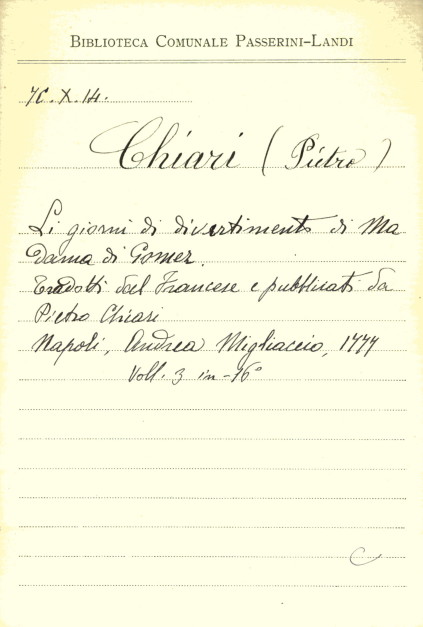 BIBLIOTECA COMUNALE PASSERINI-LANDI
7C.X.14.
Chiari (Pietro)
Li giorni di divertimento di Ma
dama di Gomer.
Tradotti dal Francese e pubblicati da
Pietro Chiari
Napoli, Andrea Migliaccio, 1777
Voll. 3 in-16°
C